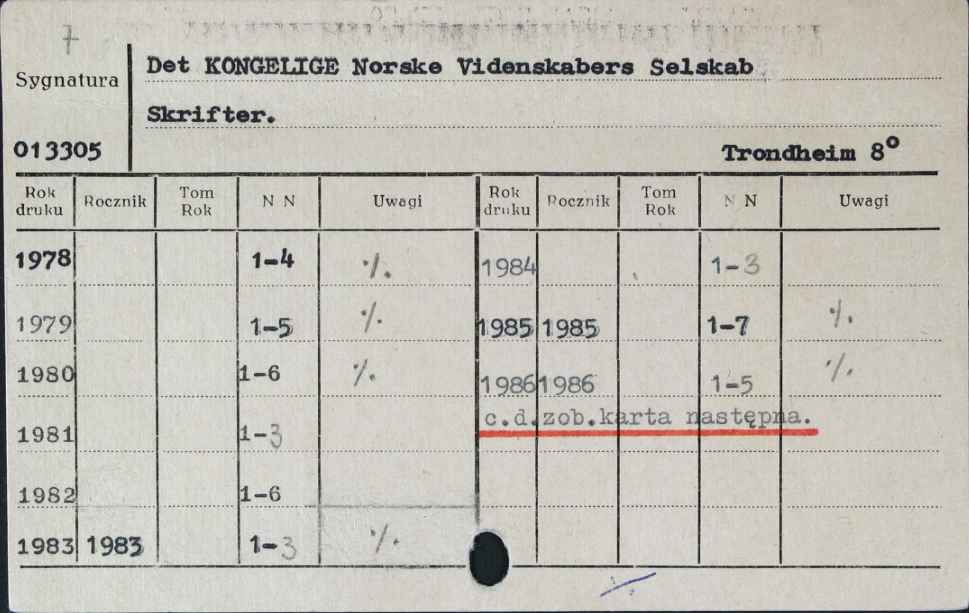 7
Sygnatura
Det KONGELIGE Norske Videnskabers Selskab
Skrifter.
013305
Trondheim 8º
Rok druku Rocznik Tom Rok N N Uwagi Rok druku Rocznik Tom Rok N N Uwagi
1978 1-4 ·/. 1984 1-3
1979 1-5 ·/. 1985 1985 1-7 ·/.
1980 1-6 ·/. 1986 1986 1-5 ·/.
c.d.zob.karta następna.
1981 1-3
1982 1-6
1983 1983 1-3 ·/.